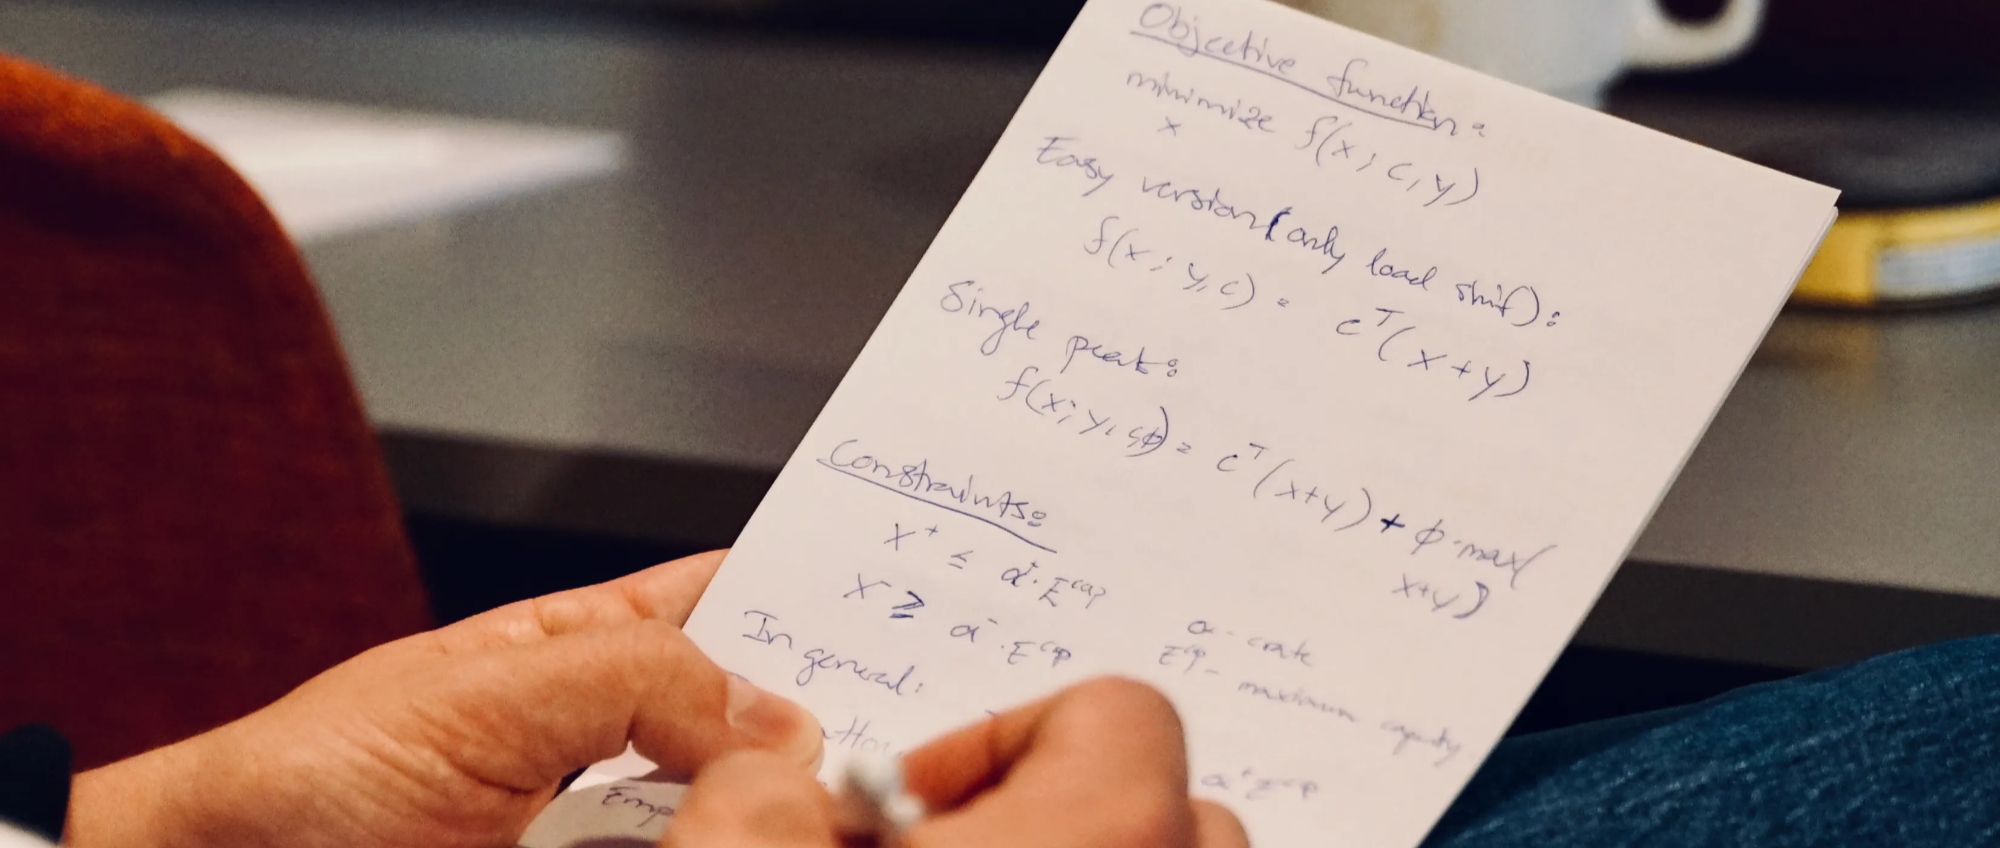 Objective function:
minimize f(x; c, y)
x
Easy version (only load shif):
f(x; y, c) = cᵀ(x+y)
Single peak:
f(x; y, c, ϕ) = cᵀ(x+y) + ϕ·max(
x+y)
Constraints:
x⁺ ≤ α⁺·Eᶜᵃᵖ
x⁻ ≥ α⁻·Eᶜᵃᵖ
α - crate
Eᶜᵃᵖ - maximum capacity
In general:
α⁺Eᶜᵃᵖ